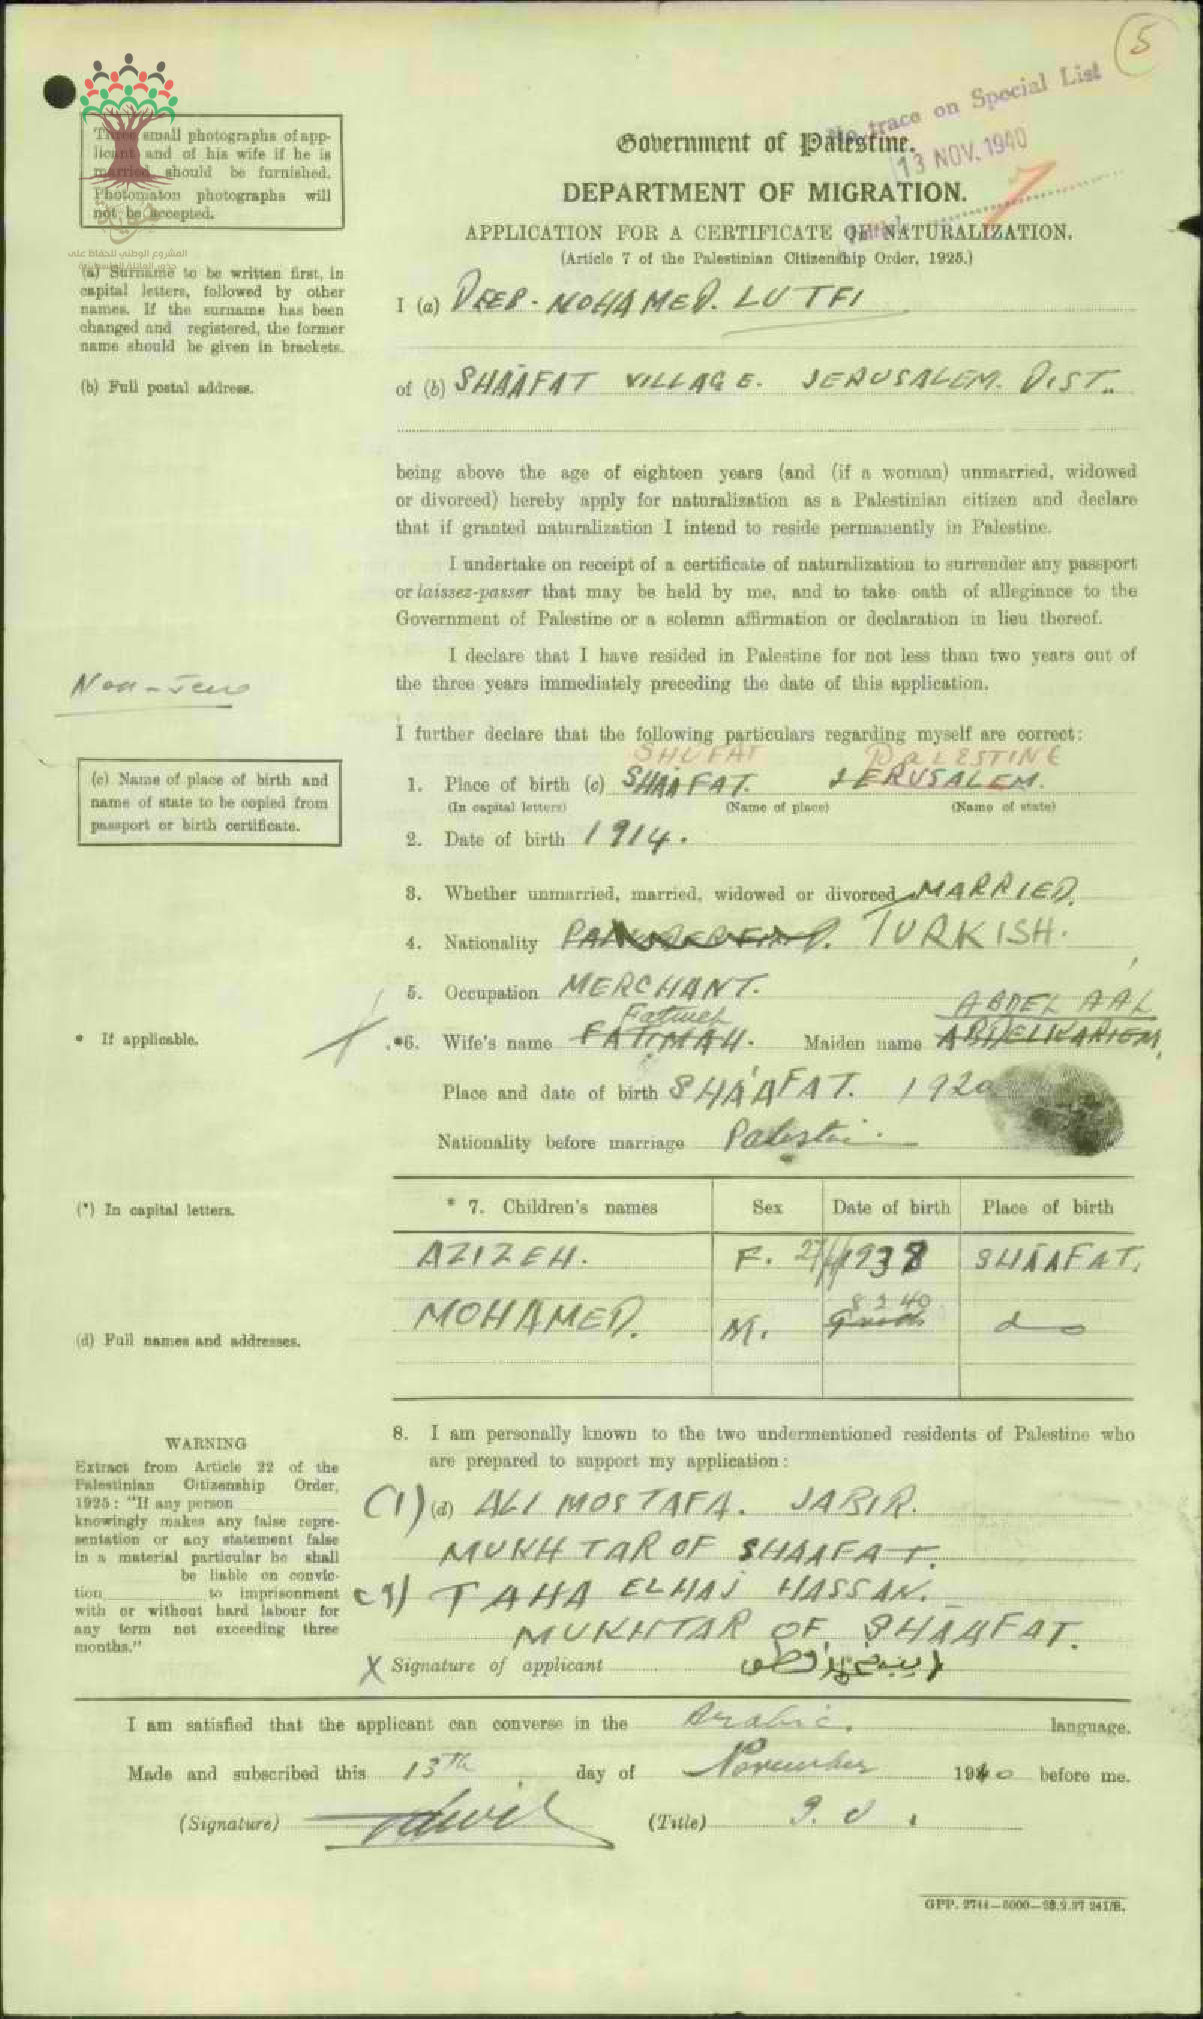 5
No trace on Special List
13 NOV. 1940
Three small photographs of app-
licant and of his wife if he is
married should be furnished.
Photomaton photographs will
not be accepted.
المشروع الوطني للحفاظ على
Government of Palestine.
DEPARTMENT OF MIGRATION.
APPLICATION FOR A CERTIFICATE OF NATURALIZATION.
(Article 7 of the Palestinian Citizenship Order, 1925.)
(a) Surname to be written first, in
capital letters, followed by other
names. If the surname has been
changed and registered, the former
name should be given in brackets.
I (a) DEEB. MOHAMED. LUTFI
(b) Full postal address.
of (b) SHAAFAT VILLAGE. JERUSALEM. DIST.
being above the age of eighteen years (and (if a woman) unmarried, widowed
or divorced) hereby apply for naturalization as a Palestinian citizen and declare
that if granted naturalization I intend to reside permanently in Palestine.
I undertake on receipt of a certificate of naturalization to surrender any passport
or laissez-passer that may be held by me, and to take oath of allegiance to the
Government of Palestine or a solemn affirmation or declaration in lieu thereof.
I declare that I have resided in Palestine for not less than two years out of
the three years immediately preceding the date of this application.
Non-Jew
I further declare that the following particulars regarding myself are correct:
SHUFAT PALESTINE
(c) Name of place of birth and
name of state to be copied from
passport or birth certificate.
1. Place of birth (c) SHAAFAT. JERUSALEM.
(In capital letters) (Name of place) (Name of state)
2. Date of birth 1914.
3. Whether unmarried, married, widowed or divorced MARRIED.
4. Nationality TURKISH.
5. Occupation MERCHANT.
ABDEL AAL
Fatmeh
* If applicable.
*6. Wife's name FATIMAH. Maiden name ABDELKARIEM
Place and date of birth SHA'AFAT. 1920
Nationality before marriage Palestin.
(*) In capital letters.
* 7. Children's names Sex Date of birth Place of birth
AZIZEH. F. 1938 SHAAFAT.
8 2 40
MOHAMED. M. do
(d) Full names and addresses.
8. I am personally known to the two undermentioned residents of Palestine who
are prepared to support my application:
WARNING
Extract from Article 22 of the
Palestinian Citizenship Order,
1925: "If any person
knowingly makes any false repre-
sentation or any statement false
in a material particular he shall
be liable on convic-
tion to imprisonment
with or without hard labour for
any term not exceeding three
months."
(1) (d) ALI MOSTAFA. JABIR.
MUKHTAR OF SHAAFAT.
(2) TAHA ELHAJ HASSAN.
MUKHTAR OF SHAAFAT.
X Signature of applicant
I am satisfied that the applicant can converse in the Arabic. language.
Made and subscribed this 13th day of November 1940 before me.
(Signature) (Title)
GPP. 2744—5000—28.9.37 241/B.